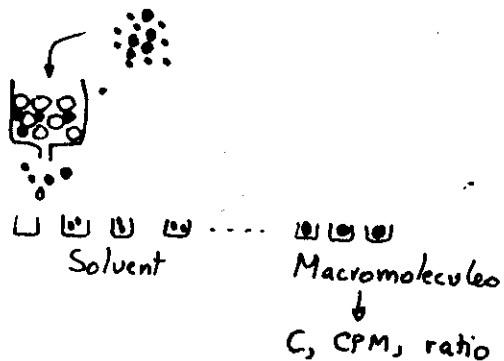 Solvent
Macromolecules
C, CPM, ratio